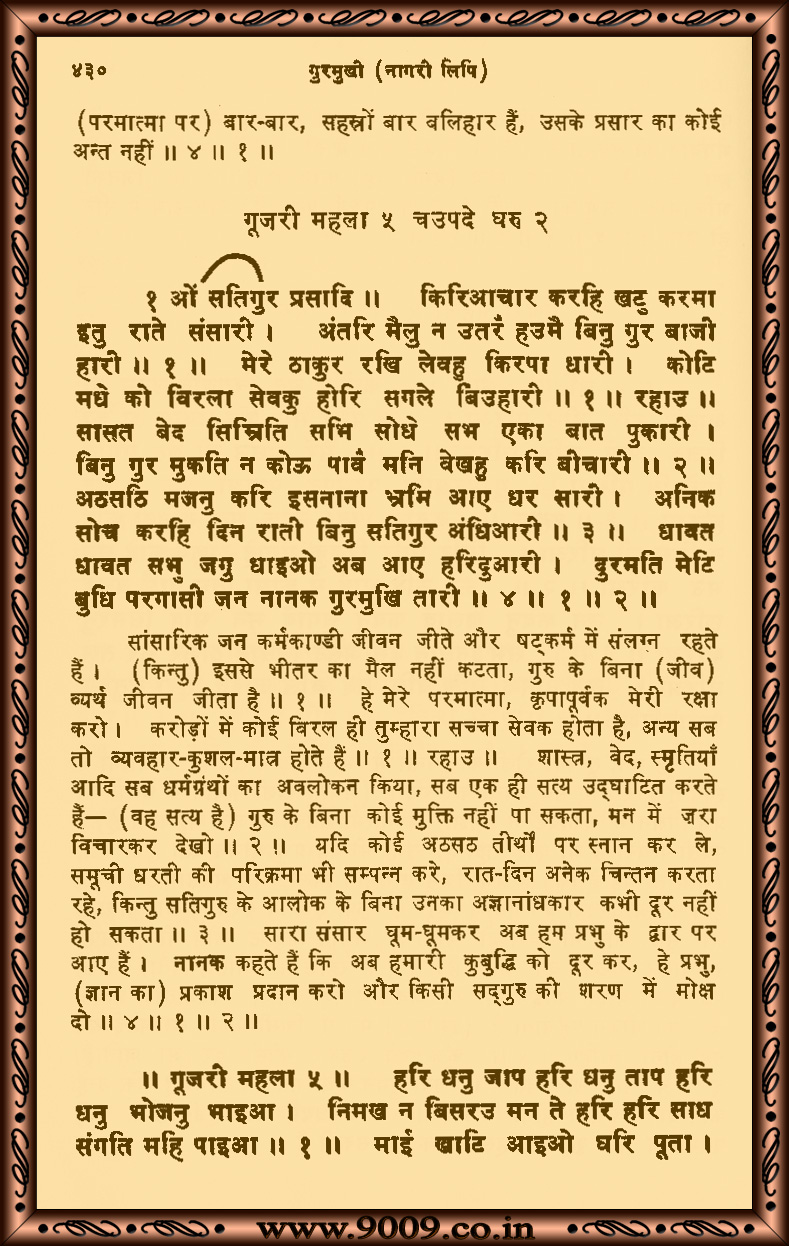 ४३० गुरमुखी (नागरी लिपि)
(परमात्मा पर) बार-बार, सहस्रों बार बलिहार हैं, उसके प्रसार का कोई
अन्त नहीं ॥ ४ ॥ १ ॥
गूजरी महला ५ चउपदे घरु २
१ ओं सतिगुर प्रसादि ॥ किरिआचार करहि खटु करमा
इतु राते संसारी । अंतरि मैलु न उतरै हउमै बिनु गुर बाजी
हारी ॥ १ ॥ मेरे ठाकुर रखि लेवहु किरपा धारी । कोटि
मधे को विरला सेवकु होरि सगले बिउहारी ॥ १ ॥ रहाउ ॥
सासत बेद सिम्रिति सभि सोधे सभ एका बात पुकारी ।
बिनु गुर मुकति न कोऊ पावै मनि वेखहु करि बीचारी ॥ २ ॥
अठसठि मजनु करि इसनाना भ्रमि आए धर सारी । अनिक
सोच करहि दिन राती बिनु सतिगुर अंधिआरी ॥ ३ ॥ धावत
धावत सभु जगु धाइओ अब आए हरिदुआरी । दुरमति मेटि
बुधि परगासी जन नानक गुरमुखि तारी ॥ ४ ॥ १ ॥ २ ॥
सांसारिक जन कर्मकाण्डी जीवन जीते और षट्कर्म में संलग्न रहते
हैं । (किन्तु) इससे भीतर का मैल नहीं कटता, गुरु के बिना (जीव)
व्यर्थ जीवन जीता है ॥ १ ॥ हे मेरे परमात्मा, कृपापूर्वक मेरी रक्षा
करो । करोड़ों में कोई विरल ही तुम्हारा सच्चा सेवक होता है, अन्य सब
तो व्यवहार-कुशल-मात्र होते हैं ॥ १ ॥ रहाउ ॥ शास्त्र, वेद, स्मृतियाँ
आदि सब धर्मग्रंथों का अवलोकन किया, सब एक ही सत्य उद्‌घाटित करते
हैं— (वह सत्य है) गुरु के बिना कोई मुक्ति नहीं पा सकता, मन में ज़रा
विचारकर देखो ॥ २ ॥ यदि कोई अठसठ तीर्थों पर स्नान कर ले,
समूची धरती की परिक्रमा भी सम्पन्न करे, रात-दिन अनेक चिन्तन करता
रहे, किन्तु सतिगुरु के आलोक के बिना उनका अज्ञानांधकार कभी दूर नहीं
हो सकता ॥ ३ ॥ सारा संसार घूम-घूमकर अब हम प्रभु के द्वार पर
आए हैं । नानक कहते हैं कि अब हमारी कुबुद्धि को दूर कर, हे प्रभु,
(ज्ञान का) प्रकाश प्रदान करो और किसी सद्‌गुरु की शरण में मोक्ष
दो ॥ ४ ॥ १ ॥ २ ॥
॥ गूजरी महला ५ ॥ हरि धनु जाप हरि धनु ताप हरि
धनु भोजनु भाइआ । निमख न बिसरउ मन ते हरि हरि साध
संगति महि पाइआ ॥ १ ॥ माई खाटि आइओ घरि पूता ।
www.9009.co.in